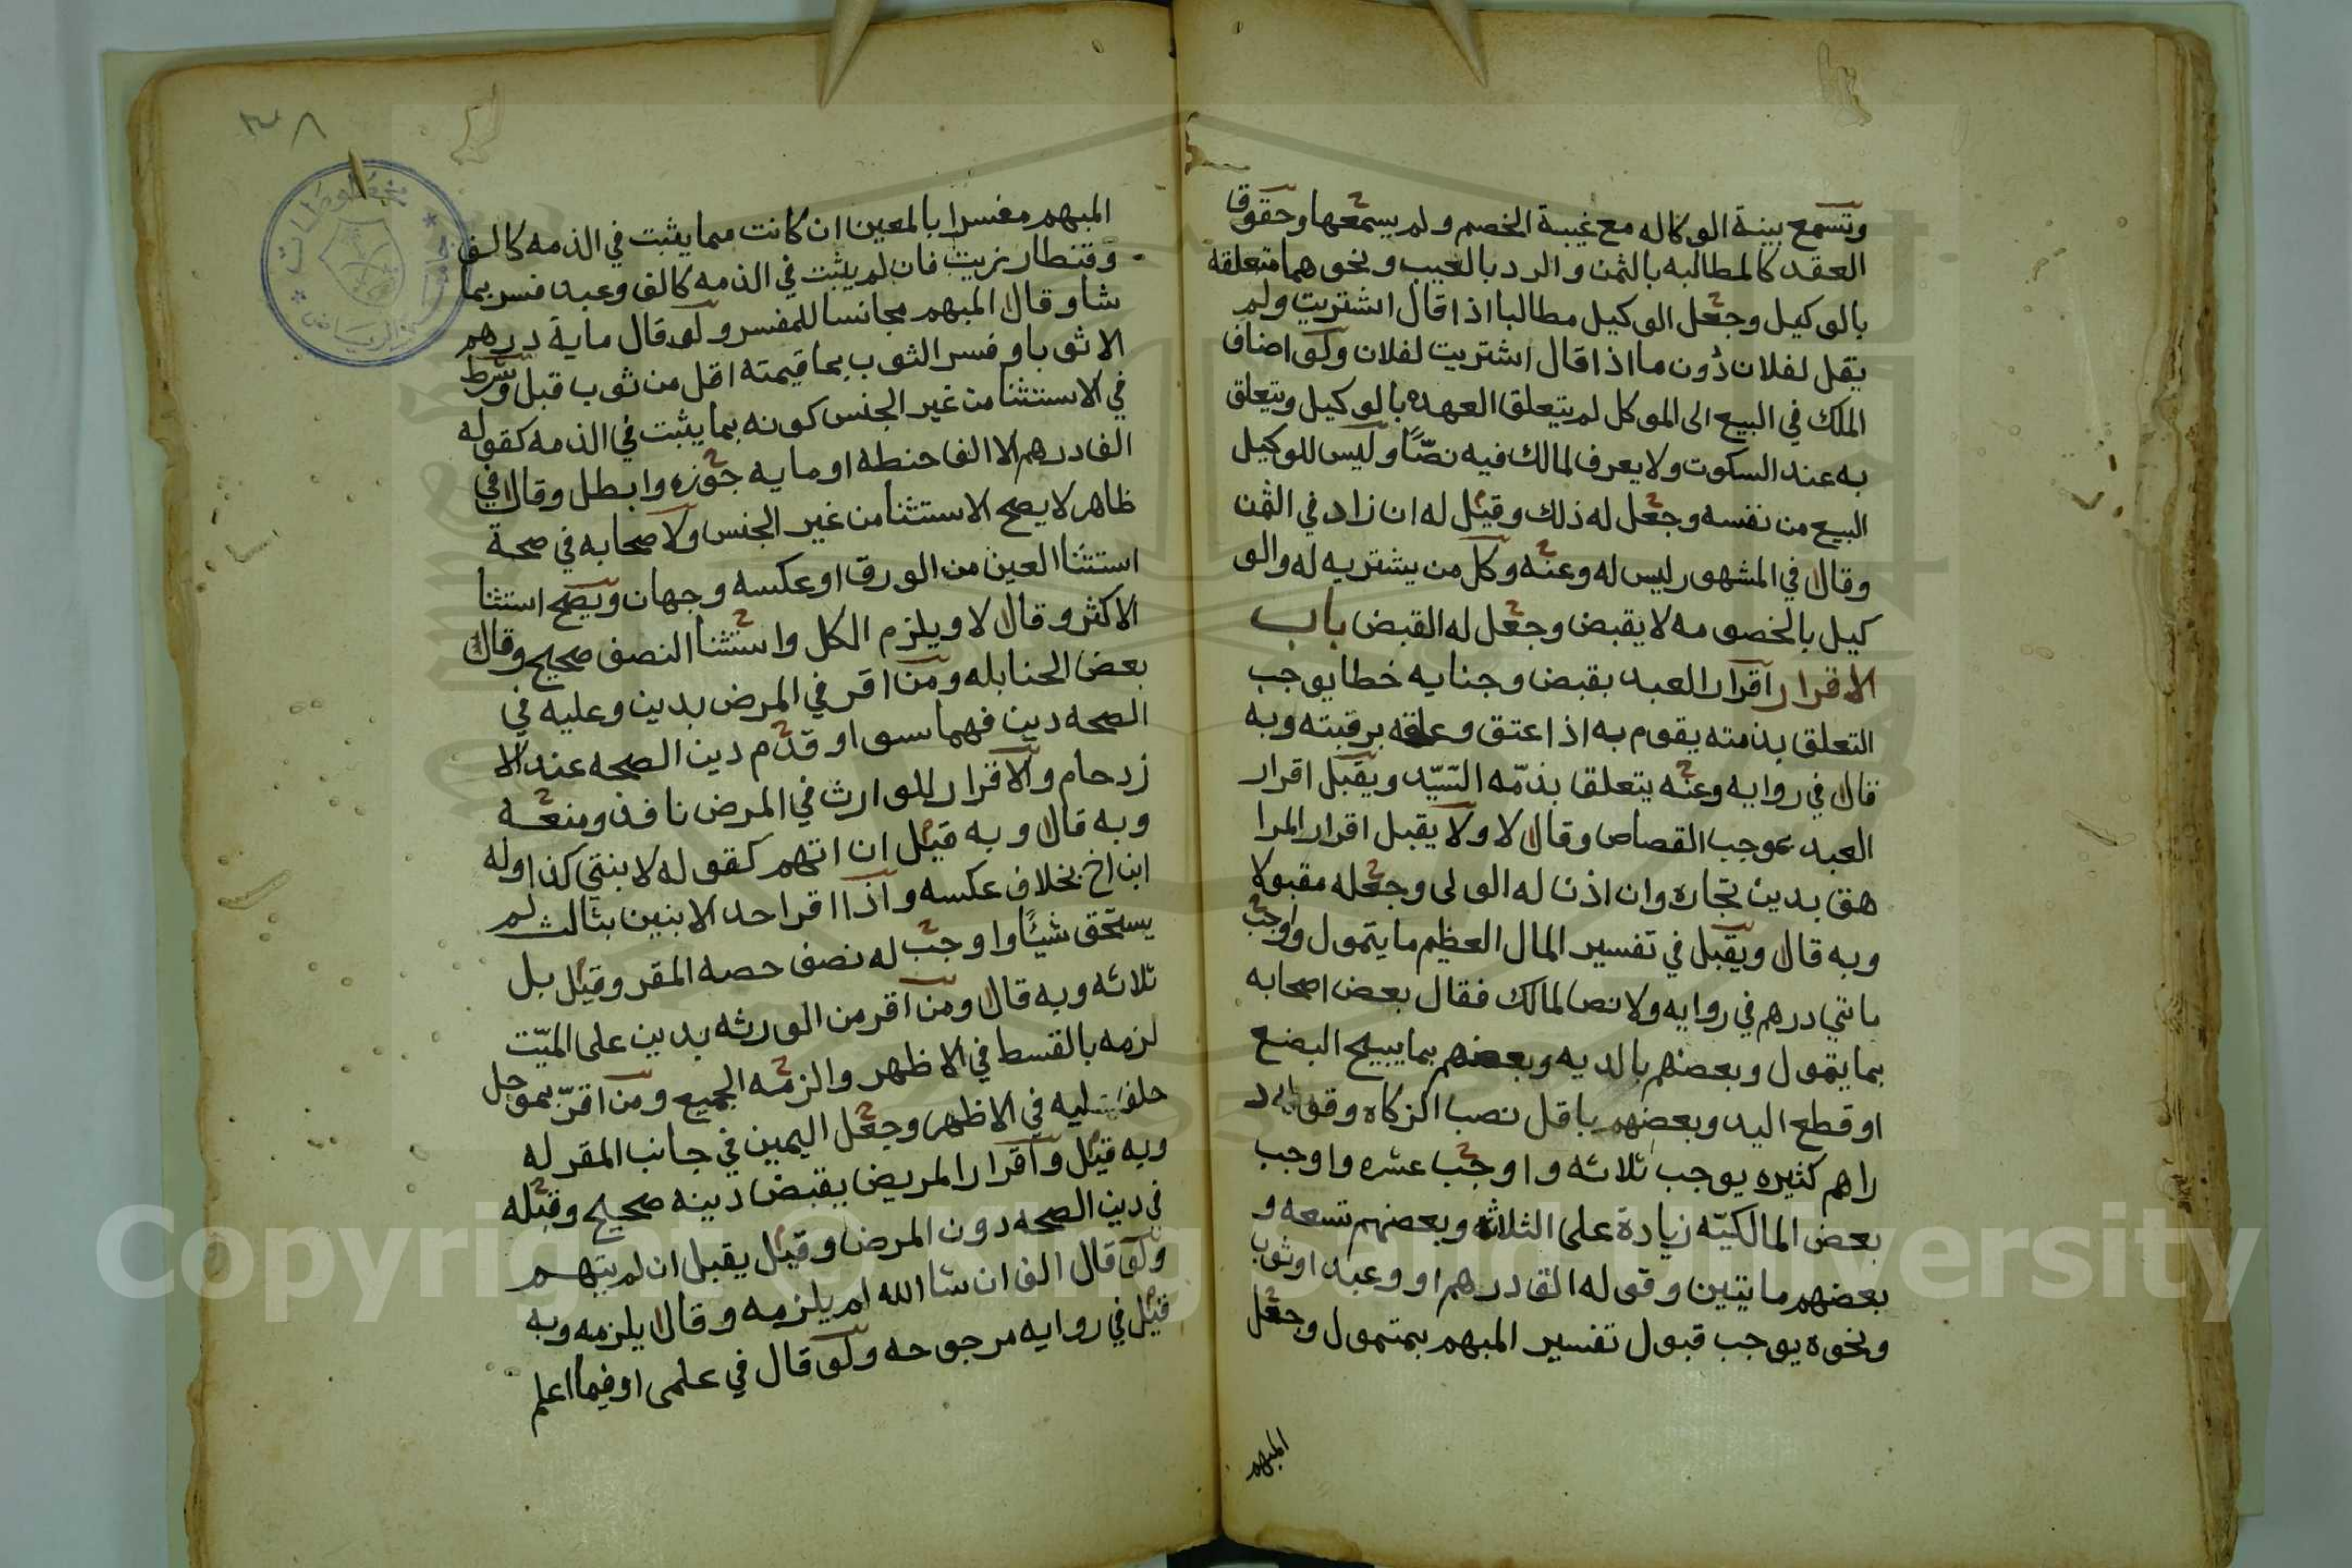 وتسمع بينة الوكاله مع غيبة الخصم ولم يسمعها وحقوق
العقد كالمطالبه بالثمن والرد بالعيب ونحوهما متعلقة
بالوكيل وجعل الوكيل مطالبا اذا قال اشتريت ولم
يقل لفلان دون ما اذا قال اشتريت لفلان ولو اضاف
الملك في البيع الى الموكل لم يتعلق العهده بالوكيل وتتعلق
به عند السكوت ولا يعرف لمالك فيه نصّاً وليس للوكيل
البيع من نفسه وجعل له ذلك وقيل له ان زاد في الثمن
وقال في المشهور ليس له وعنه وكل من يشتريه له والو
كيل بالخصومه لا يقبض وجعل له القبض باب
الاقرار اقرار العبد بقبض وجنايه خطا يوجب
التعلق بذمته يقوم به اذا عتق وعلقه برقبته وبه
قال في روايه وعنه يتعلقا بذمّه السّيّد ويقبل اقرار
العبد بموجب القصاص وقال لا ولا يقبل اقرار المرا
هق بدين تجاره وان اذن له الولى وجعله مقبولا
وبه قال ويقبل في تفسير المال العظيم ما يتمول واوجب
مائتي درهم في روايه ولا نص لمالك فقال بعض اصحابه
بما يتمول وبعضهم بالديه وبعضهم بما يبيح البضع
او قطع اليد وبعضهم باقل نصب الزكاه وقوله د
راهم كثيره يوجب ثلاثه واوجب عشره واوجب
بعض المالكيّه زيادة على الثلاثه وبعضهم تسعه و
بعضهم مايتين وقوله الف درهم او وعبد او ثوب
ونحوه يوجب قبول تفسير المبهم بمتمول وجعل
المبهم
٣٨
المبهم مفسرا بالمعين ان كانت مما يثبت في الذمه كالف
وقنطار زيت فان لم يثبت في الذمه كالف وعبد فسر بما
شا وقال المبهم مجانسا للمفسر ولو قال ماية درهم
الا ثوبا وفسر الثوب بما قيمته اقل من ثوب قبل وشرط
في الاستثنا من غير الجنس كونه بما يثبت في الذمه كقوله
الف درهم الا الفا حنطه او مايه جوزه وابطل وقال في
ظاهر لا يصح الاستثنا من غير الجنس ولاصحابه في صحة
استثنا العين من الورق او عكسه وجهان ويصح استثنا
الاكثر وقال لا ويلزم الكل واستثنا النصف صحيح وقال
بعض الحنابله ومن اقر في المرض بدين وعليه في
الصحه دين فهما سوا وقدم دين الصحه عند الا
زدحام والاقرار للوارث في المرض نافذ ومنعه
وبه قال وبه قيل ان اتهم كقوله لابنتي كذا وله
ابن اخ بخلاف عكسه واذا اقر احد الابنين بثالث لم
يستحق شيئاً واوجب له نصف حصه المقر وقيل بل
ثلاثه وبه قال ومن اقر من الورثه بدين على الميّت
لزمه بالقسط في الاظهر والزمه الجميع ومن اقرّ بموجل
حلف ليه في الاظهر وجعل اليمين في جانب المقر له
وبه قيل واقرار المريض بقبض دينه صحيح وقبله
في دين الصحه دون المرض وقيل يقبل ان لم يتهم
ولو قال الف ان شا الله لم يلزمه وقال يلزمه وبه
قيل في روايه مرجوحه ولو قال في علمى او فيما اعلم
Copyright © King Saud University